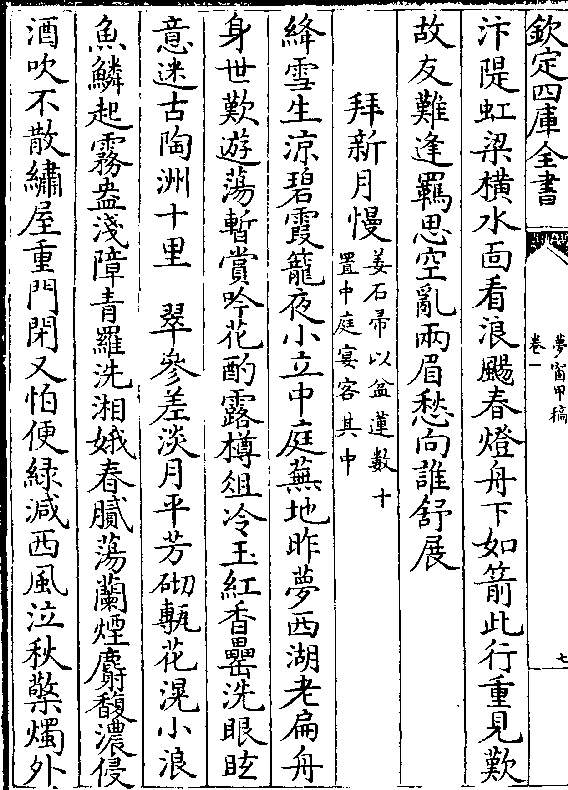 欽定四庫全書
夢窗甲稿
卷一
七
汴隄虹梁橫水面看浪颺春燈舟下如箭此行重見歎
故友難逢羈思空亂兩眉愁向誰舒展
拜新月慢姜石帚以盆蓮數十
置中庭宴客其中
絳雪生涼碧霞籠夜小立中庭蕪地昨夢西湖老扁舟
身世歎遊蕩暫賞吟花酌露樽俎冷玉紅香罍洗眼眩
意迷古陶洲十里 翠參差淡月平芳砌甎花滉小浪
魚鱗起霧盎淺障青羅洗湘娥春膩蕩蘭煙麝馥濃侵
酒吹不散繡屋重門閉又怕便綠減西風泣秋檠燭外